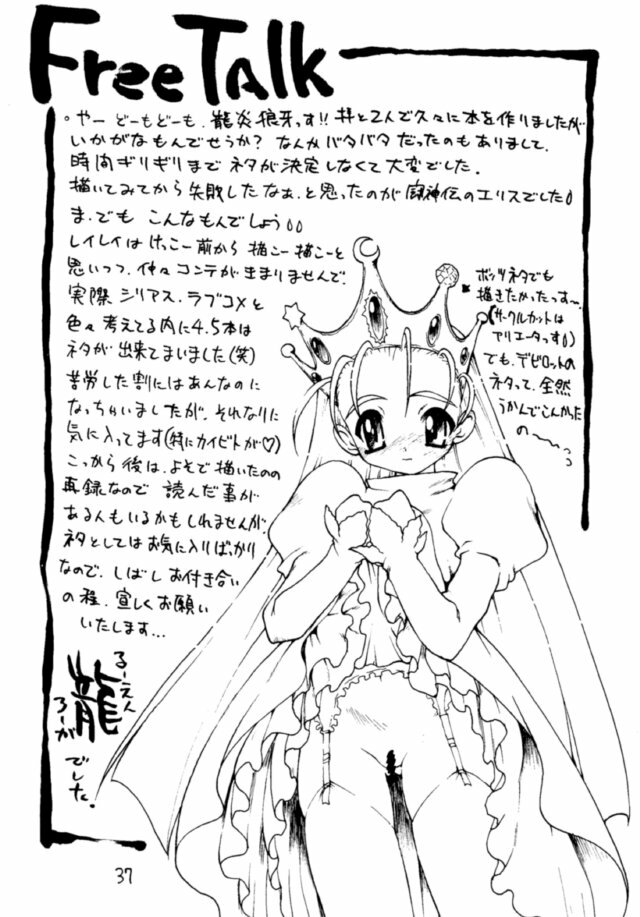 Free Talk
。やー どーもどーも、龍炎狼牙っす!! 拝と2人で久々に本を作りましたが
いかがなもんでせうか? なんかバタバタだったのもありまして、
時間ギリギリまで ネタが決定しなくて大変でした。
描いてみてから失敗したなぁ、と思ったのが 闘神伝のエリスでした
ま、でも こんなもんでしょう
レイレイはけっこー前から 描こー描こーと
思いつつ、仲々コンテがきまりませんで、
実際 シリアス、ラブコメと
色々考えてる内に4.5本は
ネタが出来てまいました(笑)
苦労した割にはあんなのに
なっちゃいましたが、それなりに
気に入ってます(特にカイビトが♡)
こっから後は、よそで描いたのの
再録なので 読んだ事が
ある人もいるかもしれませんが、
ネタとしてはお気に入りばっかり
なので、しばしお付き合い
の程、宜しくお願い
いたします...
ボッツネタでも
描きたかったっすー
(サークルカットは
アリエータっす)
でも、デビロットの
ネタって、全然
うかんでこんかった
の〜〜っっ
るーえん
龍
ろーが
でした。
37